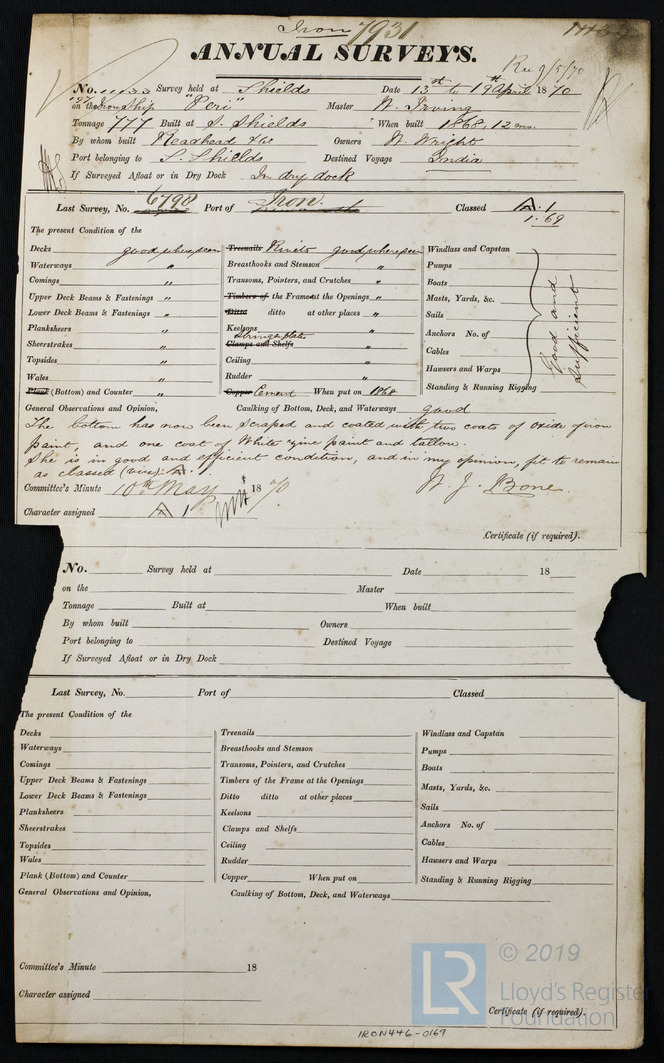 Iron 7931
ANNUAL SURVEYS.
Rec 9/5/70
No. Survey held at Shields Date 13th to 19th April 1870
on the Iron Ship "Peri" Master W. Irving
Tonnage 777 Built at S. Shields When built 1868, 12 mo.
By whom built Readhead & Co Owners W. Wright
Port belonging to S. Shields Destined Voyage India
If Surveyed Afloat or in Dry Dock In dry dock
Last Survey, No. 6798 Port of Iron. Classed A.1
1.69
The present Condition of the
Decks good where seen
Waterways "
Comings "
Upper Deck Beams & Fastenings "
Lower Deck Beams & Fastenings "
Planksheers "
Sheerstrakes "
Topsides "
Wales "
Plank (Bottom) and Counter "
Treenails Rivets good where seen
Breasthooks and Stemson "
Transoms, Pointers, and Crutches "
Timbers of the Frame at the Openings "
Ditto ditto at other places "
Keelsons "
Stringer plates
Clamps and Shelfs "
Ceiling "
Rudder "
Copper Cement When put on 1868
Windlass and Capstan
Pumps
Boats
Masts, Yards, &c.
Sails
Anchors No. of
Cables
Hawsers and Warps
Standing & Running Rigging
Good and
Sufficient
General Observations and Opinion, Caulking of Bottom, Deck, and Waterways good
The bottom has now been scraped and coated with two coats of oxide of iron
paint, and one coat of White zinc paint and tallow.
She is in good and efficient condition, and in my opinion, fit to remain
as classed (vizt): A. 1.
W. J. Bone.
Committee's Minute 10th May 1870
Character assigned A 1
Certificate (if required).
No. Survey held at Date 18
on the Master
Tonnage Built at When built
By whom built Owners
Port belonging to Destined Voyage
If Surveyed Afloat or in Dry Dock
Last Survey, No. Port of Classed
The present Condition of the
Decks
Waterways
Comings
Upper Deck Beams & Fastenings
Lower Deck Beams & Fastenings
Planksheers
Sheerstrakes
Topsides
Wales
Plank (Bottom) and Counter
Treenails
Breasthooks and Stemson
Transoms, Pointers, and Crutches
Timbers of the Frame at the Openings
Ditto ditto at other places
Keelsons
Clamps and Shelfs
Ceiling
Rudder
Copper When put on
Windlass and Capstan
Pumps
Boats
Masts, Yards, &c.
Sails
Anchors No. of
Cables
Hawsers and Warps
Standing & Running Rigging
General Observations and Opinion, Caulking of Bottom, Deck, and Waterways
Committee's Minute 18
Character assigned
Certificate (if required).
LR © 2019
Lloyd's Register
Foundation
IRON446-0169